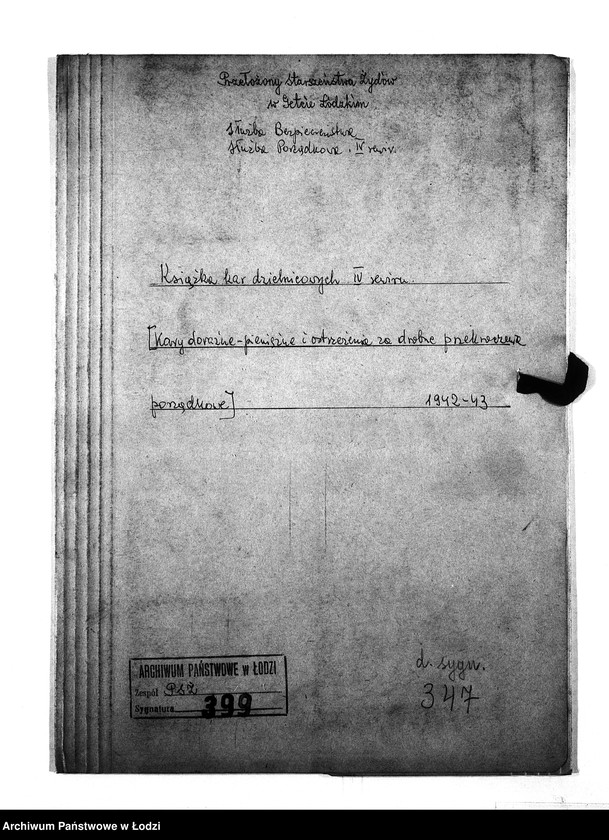 Przełożony Starszeństwa Żydów
w Getcie Łódzkim
Służba Bezpieczeństwa
Służba Porządkowa. IV rewir.
Książka kar dzielnicowych IV rewiru.
[Kary doraźne-pieniężne i ostrzeżenia za drobne przekroczenia
porządkowe] 1942-43
ARCHIWUM PAŃSTWOWE w ŁODZI
Zespół PSŻ
Sygnatura 399
d. sygn.
347
Archiwum Państwowe w Łodzi